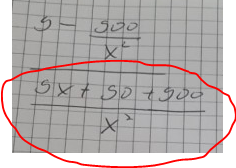 5 - 500
x²
5x + 50 + 500
x²